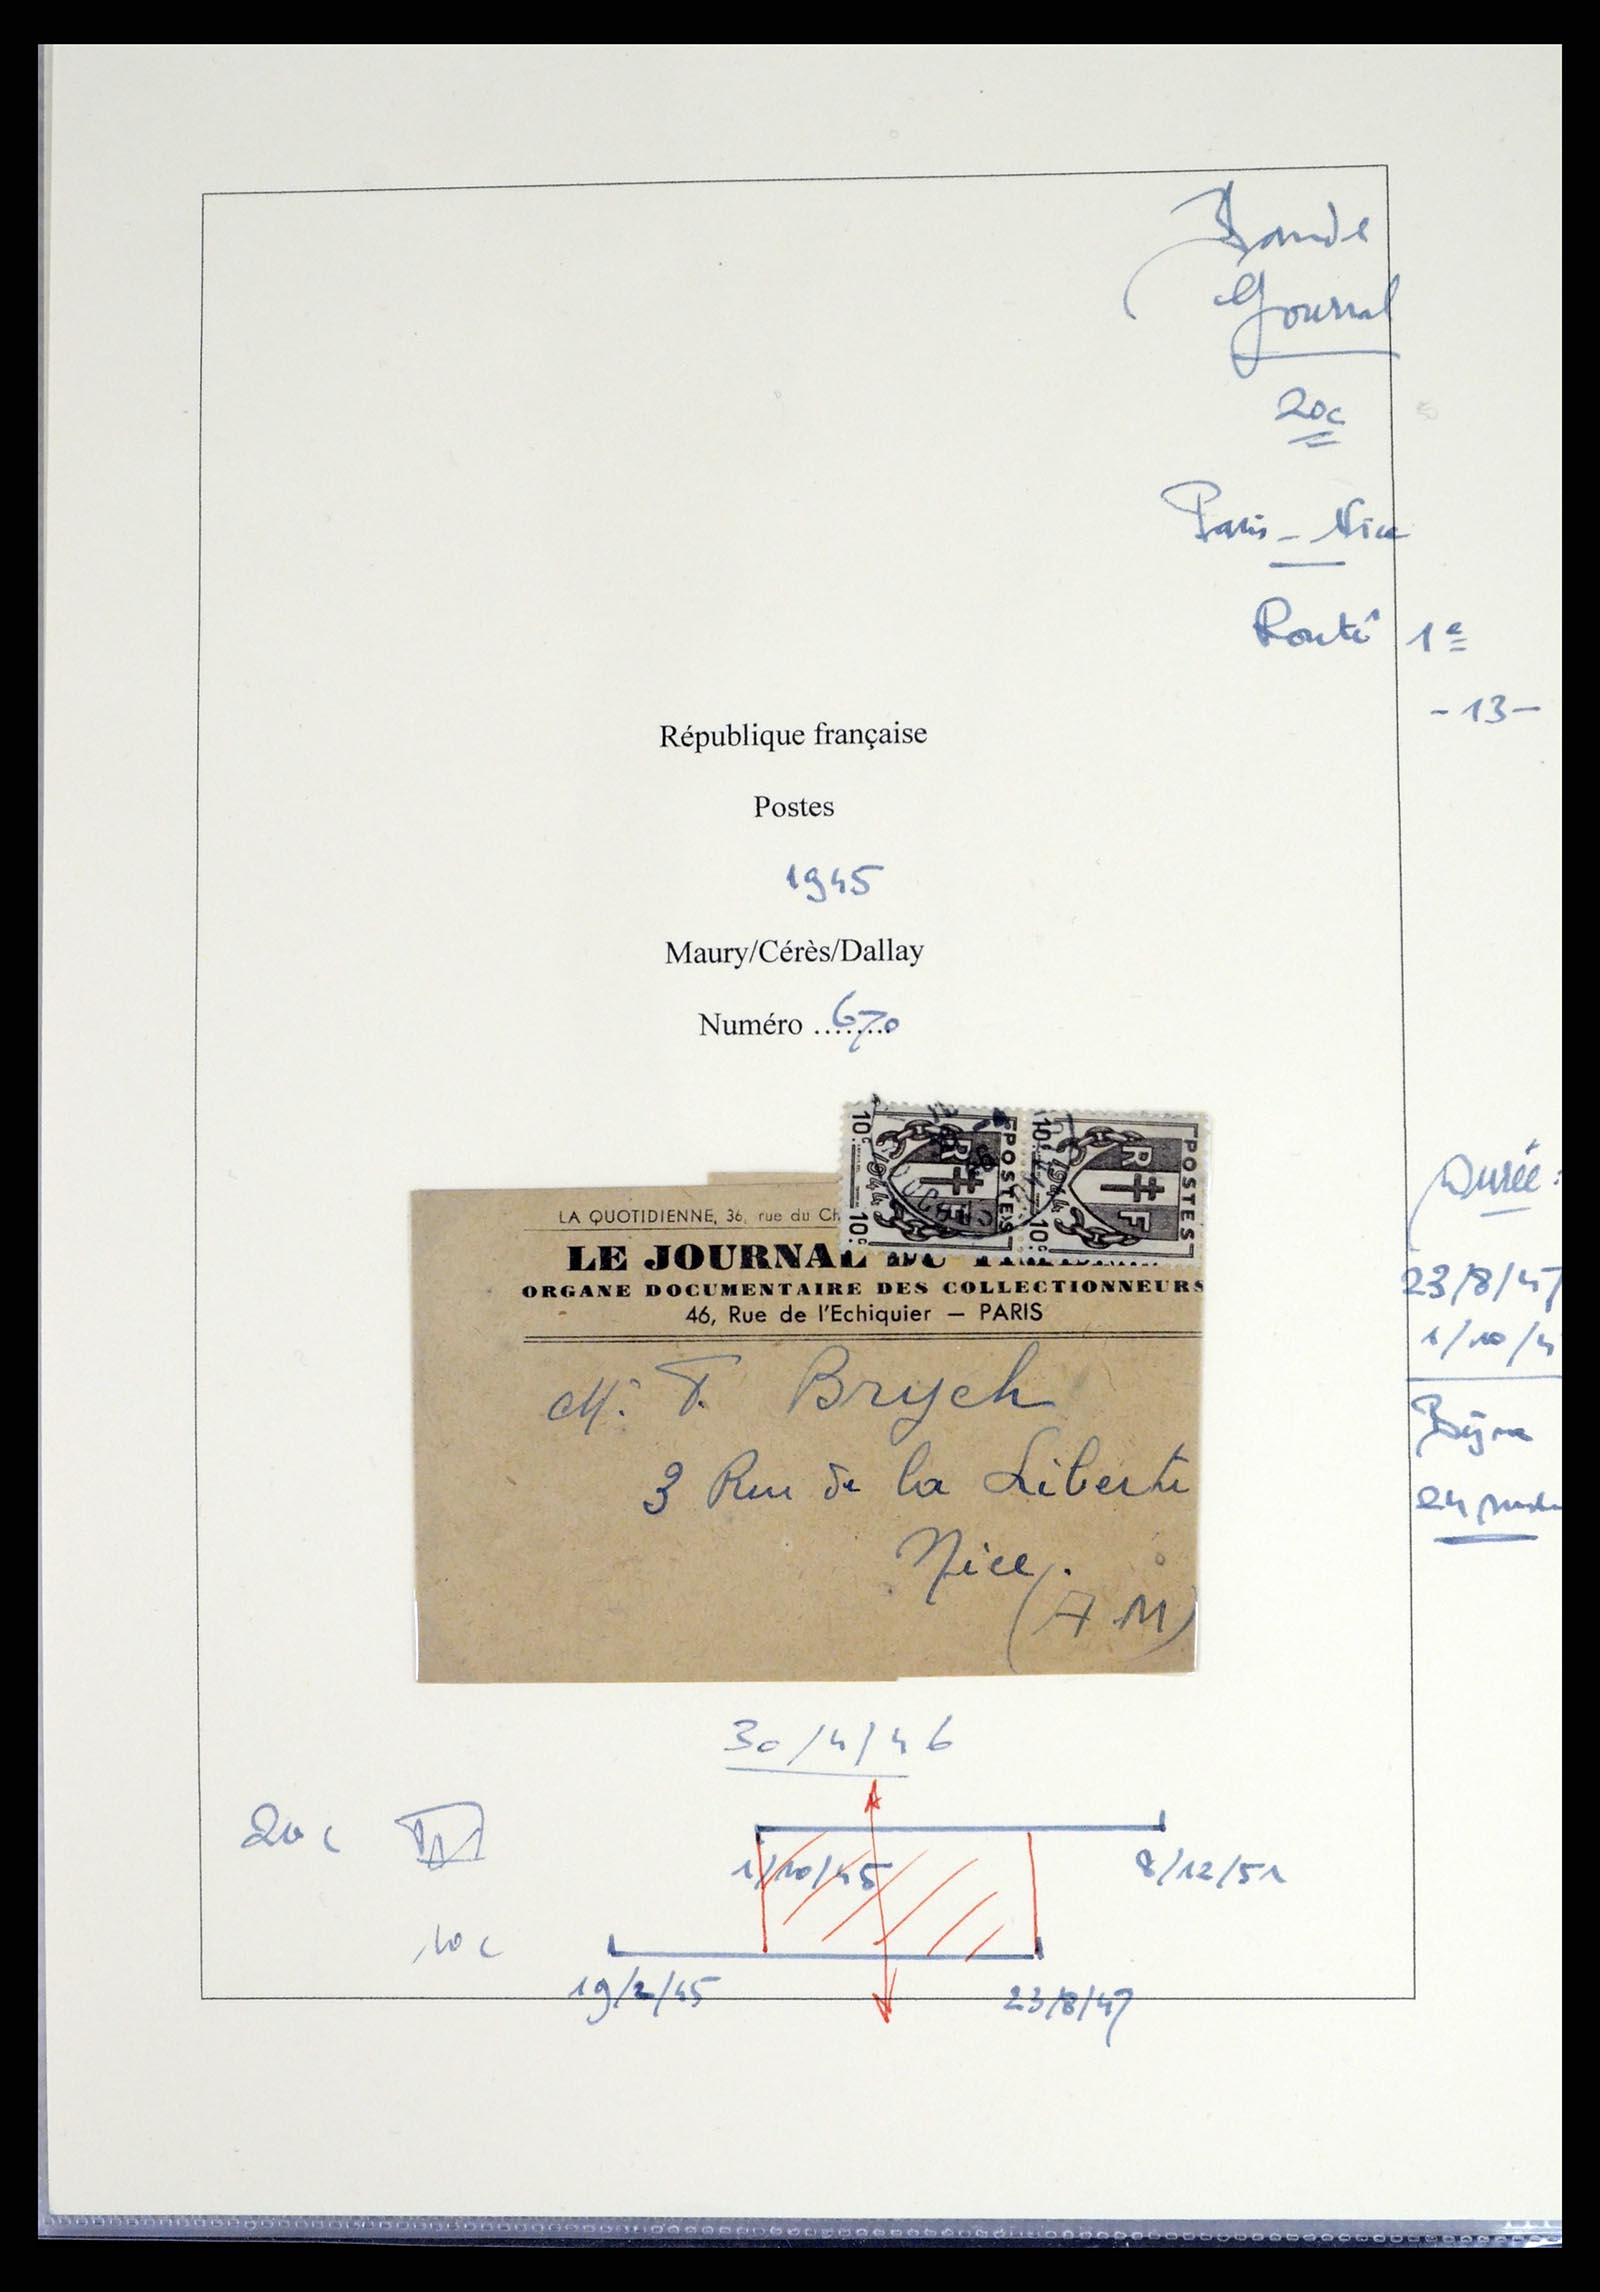 Bande
Journal
20c
Paris - Nice
Routé 1e
- 13 -
République française
Postes
1945
Maury/Cérès/Dallay
Numéro ........ 670
10c POSTES RF 1944 10c
10c POSTES RF 10c
LA QUOTIDIENNE, 36, rue du Ch
LE JOURNAL DU
ORGANE DOCUMENTAIRE DES COLLECTIONNEURS
46, Rue de l'Echiquier — PARIS
M. F. Brych
3 Rue de la Liberté
Nice.
(A M)
Durée :
23/8/47
1/10/4
30/4/46
20c
1/10/45
8/12/51
10c
19/2/45
23/8/47